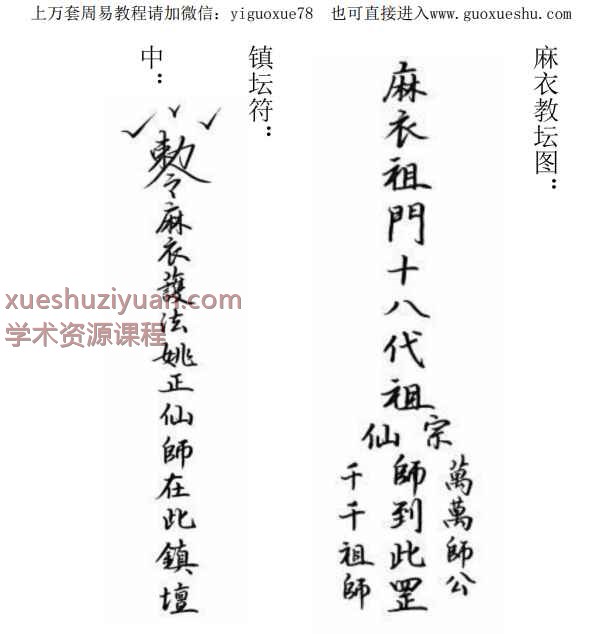 上万套周易教程请加微信：yiguoxue78　也可直接进入www.guoxueshu.com
麻衣教坛图：
麻衣祖門十八代祖師到此罡
宗
仙
萬萬師公
千千祖師
镇坛符：
中：
勅令麻衣護法姚正仙師在此鎮壇
xueshuziyuan.com
学术资源课程